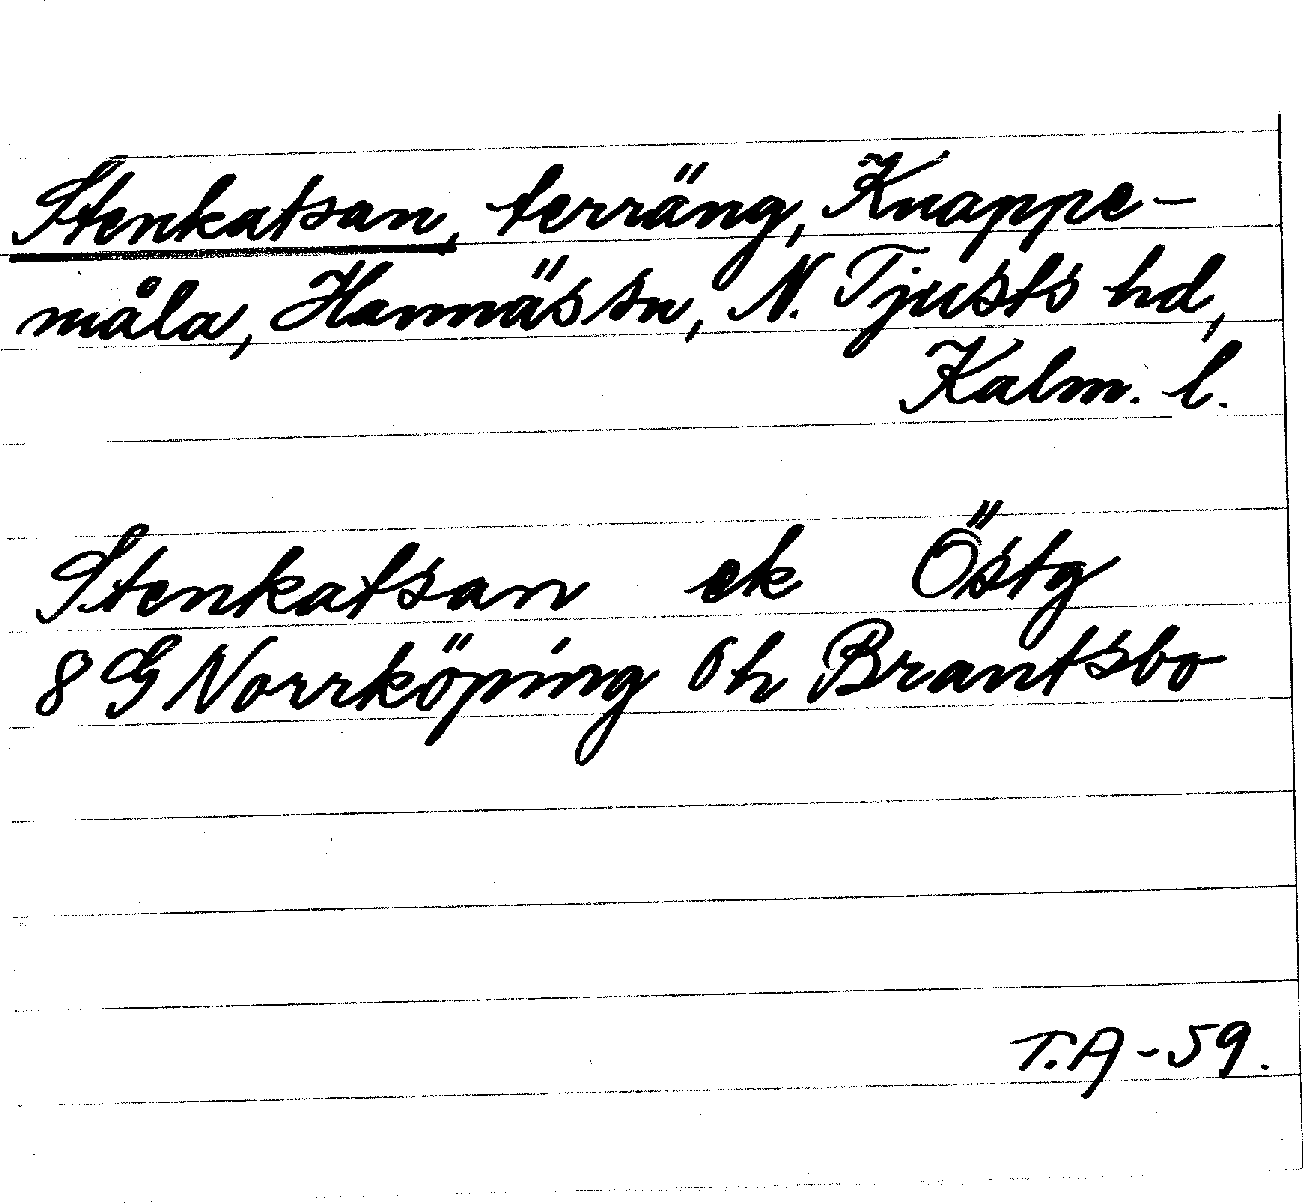 Stenkatsan, terräng, Knappe-
måla, Hannäs sn, N. Tjusts hd,
Kalm. l.
Stenkatsan ek Östg
8 G Norrköping 0h Brantsbo
T.A-59.